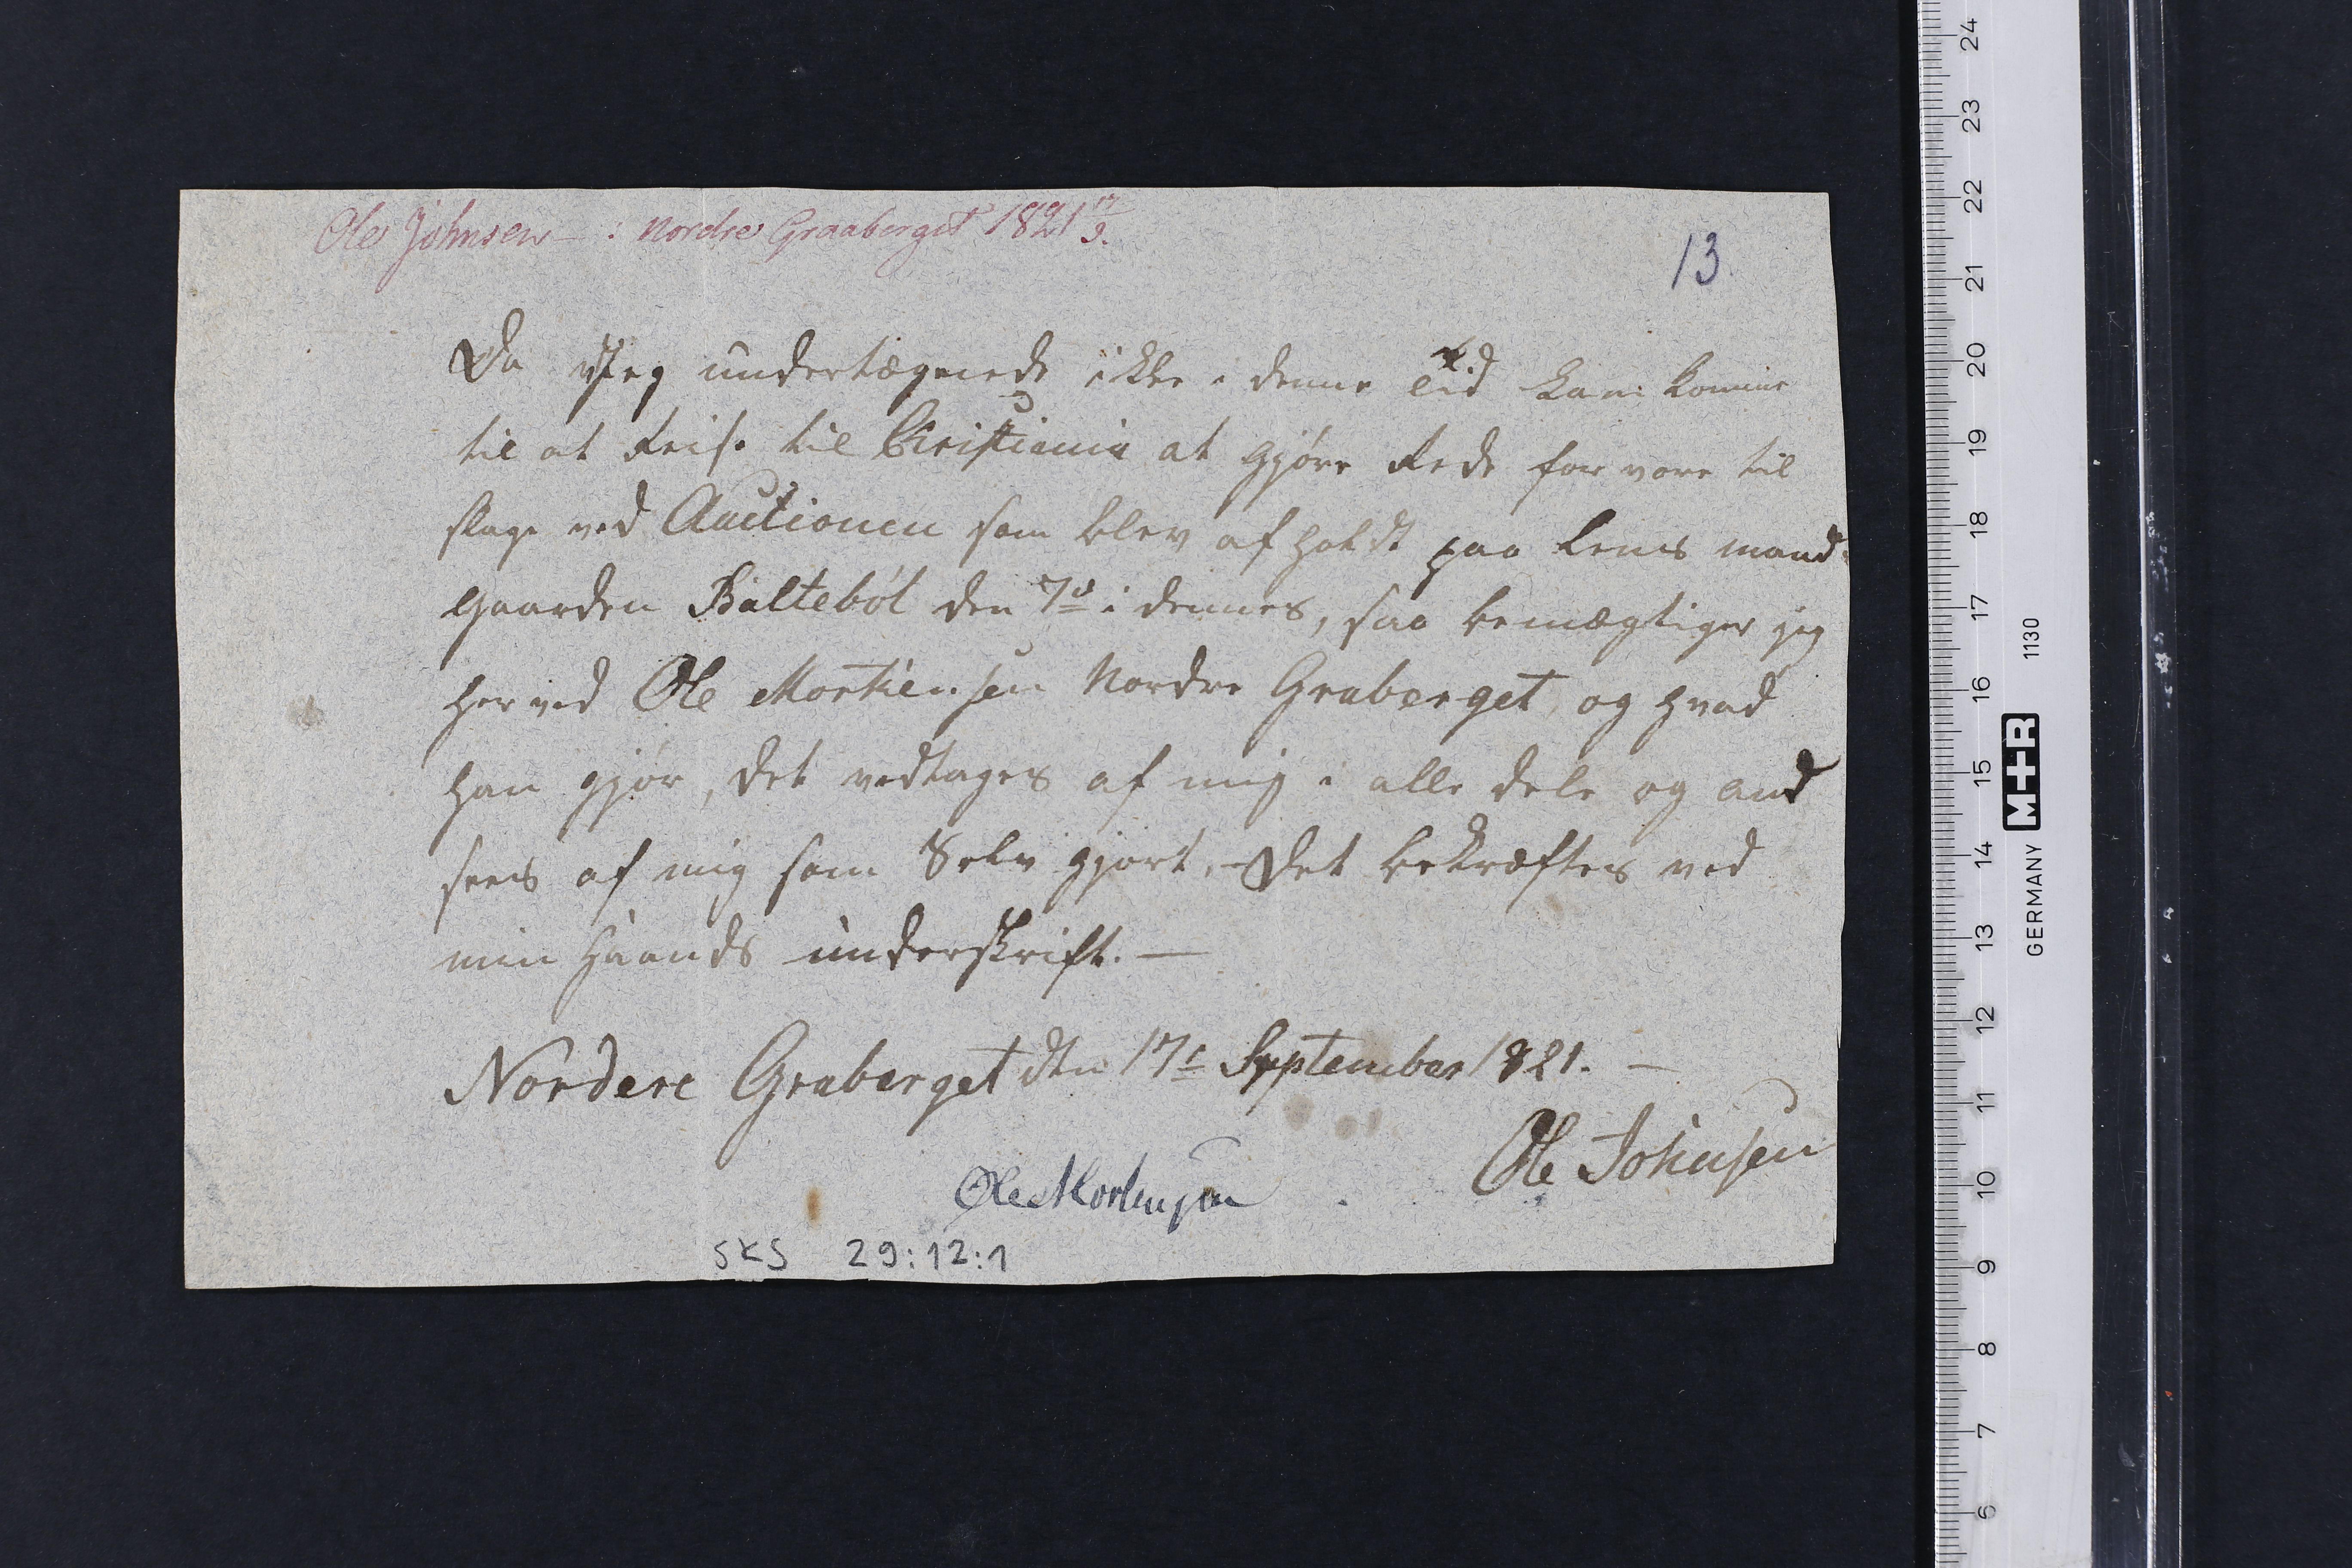 Ole Johnsen — : Nordre Graaberget 1821 17/9.
13.
Da Jeg undertægnede ikke i denne Tid kan komme
til at Reise til Cristiania at gjøre Rede for vore til
slage ved Auctionen som blev afholdt paa Lens mand-
gaarden Baltebøl den 7de i dennes, saa bemægtiger jeg
herved Ole Morthensen Nordre Graberget, og hvad
han gjør, det vedtages af mig i alle dele og and
sees af mig som Selv gjort. Det bekræftes ved
min Haands underskrift. —
Nordere Graberget den 17e September 1821. —
Ole Johnsen
Ole Mortensen
SKS 29:12:1
24 23 22 21 20 19 18 17 16 15 14 13 12 11 10 9 8 7 6
GERMANY M+R 1130